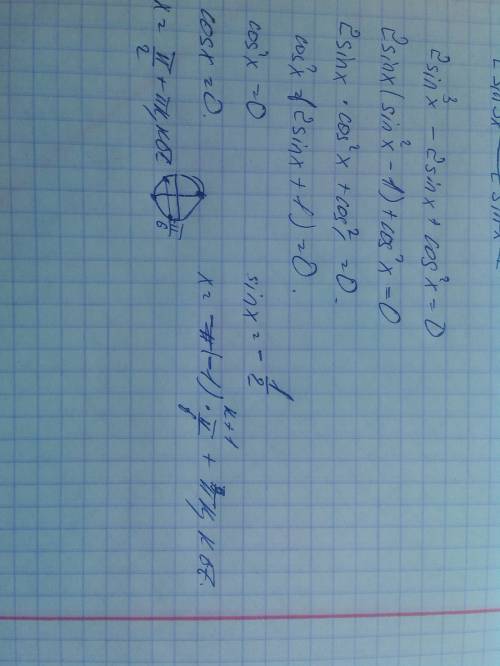 2sin³x - 2sinx + cos²x = 0
2sinx(sin²x - 1) + cos²x = 0
2sinx · cos²x + cos² = 0.
cos²x (2sinx + 1) = 0.
cos²x = 0
sinx = - 1/2
cosx = 0.
x = (-1)^(k+1) · π/6 + πk, k∈Z.
x = π/2 + πk, k∈Z
π/6